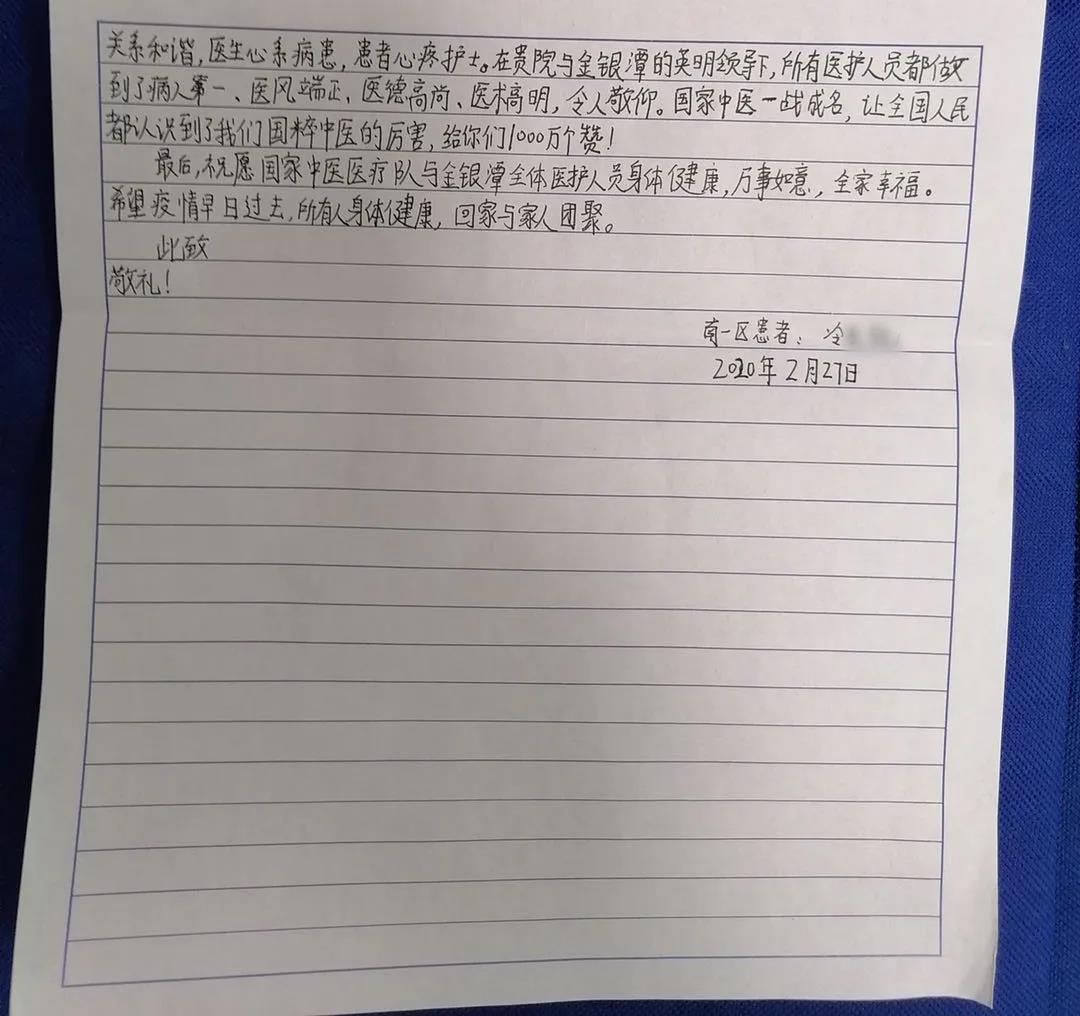 关系和谐，医生心系病患，患者心疼护士。在贵院与金银潭的英明领导下，所有医护人员都做
到了病人第一、医风端正、医德高尚、医术高明，令人敬仰。国家中医一战成名，让全国人民
都认识到了我们国粹中医的厉害，给你们1000万个赞！
最后，祝愿国家中医医疗队与金银潭全体医护人员身体健康，万事如意，全家幸福。
希望疫情早日过去，所有人身体健康，回家与家人团聚。
此致
敬礼！
南一区患者：冷
2020年2月27日